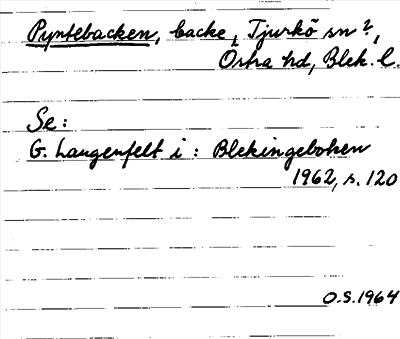 Pyntebacken, backe, Tjurkö sn?,
Östra hd, Blek. l.
Se:
G. Langenfelt i: Blekingeboken
1962, s. 120
O.S. 1964